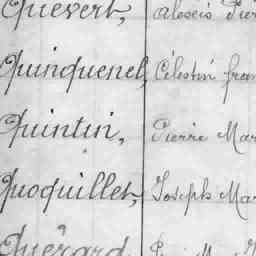 Quévert, Alexis Pier
Quinquenel, Célestin fran
Quintin, Pierre Mar
Quoquillet, Joseph Mar
Quérard